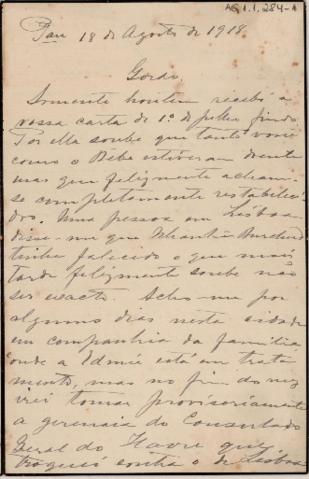 AG 1.1.284-1
Pau 18 de Agosto de 1918.
Gordo.
Somente hontem recebi a
vossa carta de 1º de Julho findo
Por ella soube que tanto você
como o Bebe estiveram doente
mas que felizmente acham-
se completamente restabeleci-
dos. Uma pessoa em Lisboa
disse-me que
tinha falecido o que mais
tarde felizmente soube não
ser exacto. Acho-me por
alguns dias nesta cidade
em companhia da familia
onde a Edmée está em trata
mento, mas no fim do mez
irei tomar provisoriamente
a gerencia do Consulado
Geral do Havre que
troquei contra o de Lisboa